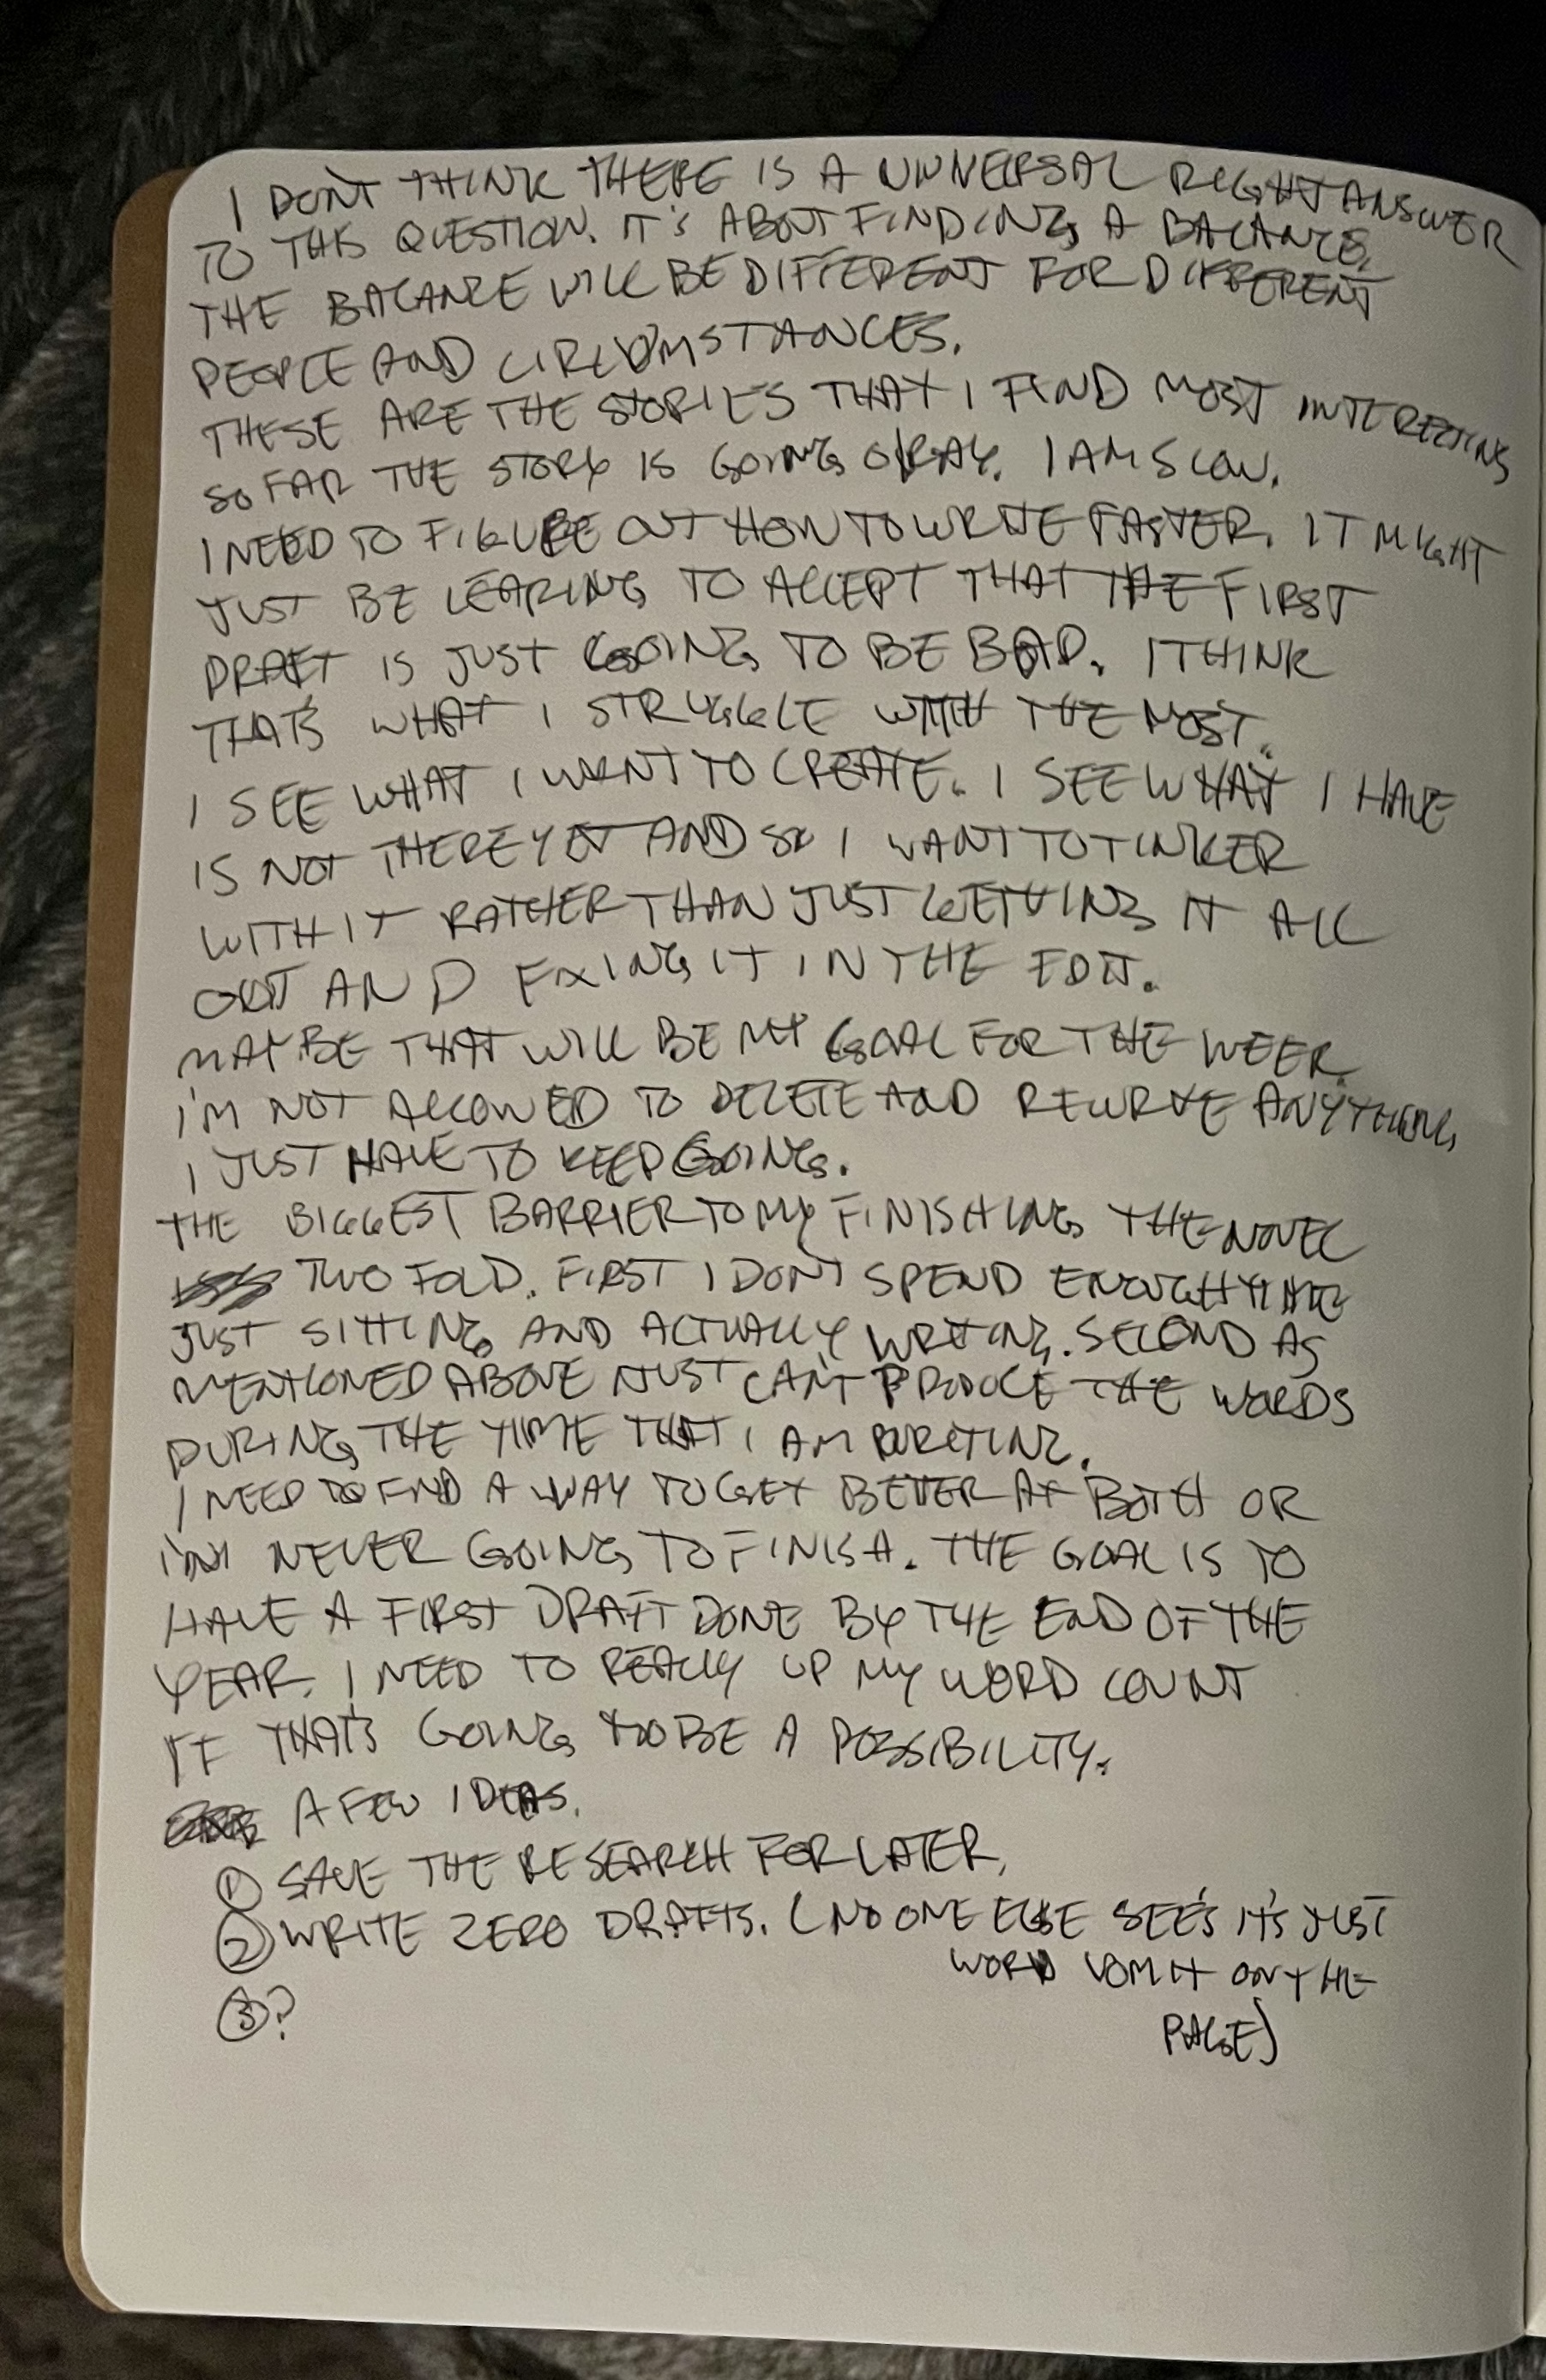 I DON'T THINK THERE IS A UNIVERSAL RIGHT ANSWER
TO THIS QUESTION. IT'S ABOUT FINDING A BALANCE.
THE BALANCE WILL BE DIFFERENT FOR DIFFERENT
PEOPLE AND CIRCUMSTANCES.
THESE ARE THE STORIES THAT I FIND MOST INTERESTING
SO FAR THE STORY IS GOING OKAY. I AM SLOW.
I NEED TO FIGURE OUT HOW TO WRITE FASTER. IT MIGHT
JUST BE LEARING TO ACCEPT THAT THE FIRST
DRAFT IS JUST GOING TO BE BAD. I THINK
THAT'S WHAT I STRUGGLE WITH THE MOST.
I SEE WHAT I WANT TO CREATE. I SEE WHAT I HAVE
IS NOT THERE YET AND SO I WANT TO TINKER
WITH IT RATHER THAN JUST GETTING IT ALL
OUT AND FIXING IT IN THE EDIT.
MAYBE THAT WILL BE MY GOAL FOR THE WEEK.
I'M NOT ALLOWED TO DELETE AND REWRITE ANYTHING,
I JUST HAVE TO KEEP GOING.
THE BIGGEST BARRIER TO MY FINISHING THE NOVEL
TWO FOLD. FIRST I DON'T SPEND ENOUGH TIME
JUST SITTING AND ACTUALLY WRITING. SECOND AS
MENTIONED ABOVE JUST CAN'T PRODUCE THE WORDS
DURING THE TIME THAT I AM WRITING.
I NEED TO FIND A WAY TO GET BETTER AT BOTH OR
I'M NEVER GOING TO FINISH. THE GOAL IS TO
HAVE A FIRST DRAFT DONE BY THE END OF THE
YEAR. I NEED TO REALLY UP MY WORD COUNT
IF THAT'S GOING TO BE A POSSIBILITY.
A FEW IDEAS.
① SAVE THE RESEARCH FOR LATER.
② WRITE ZERO DRAFTS. (NO ONE ELSE SEE'S IT'S JUST
WORD VOMIT ON THE
PAGE)
③ ?